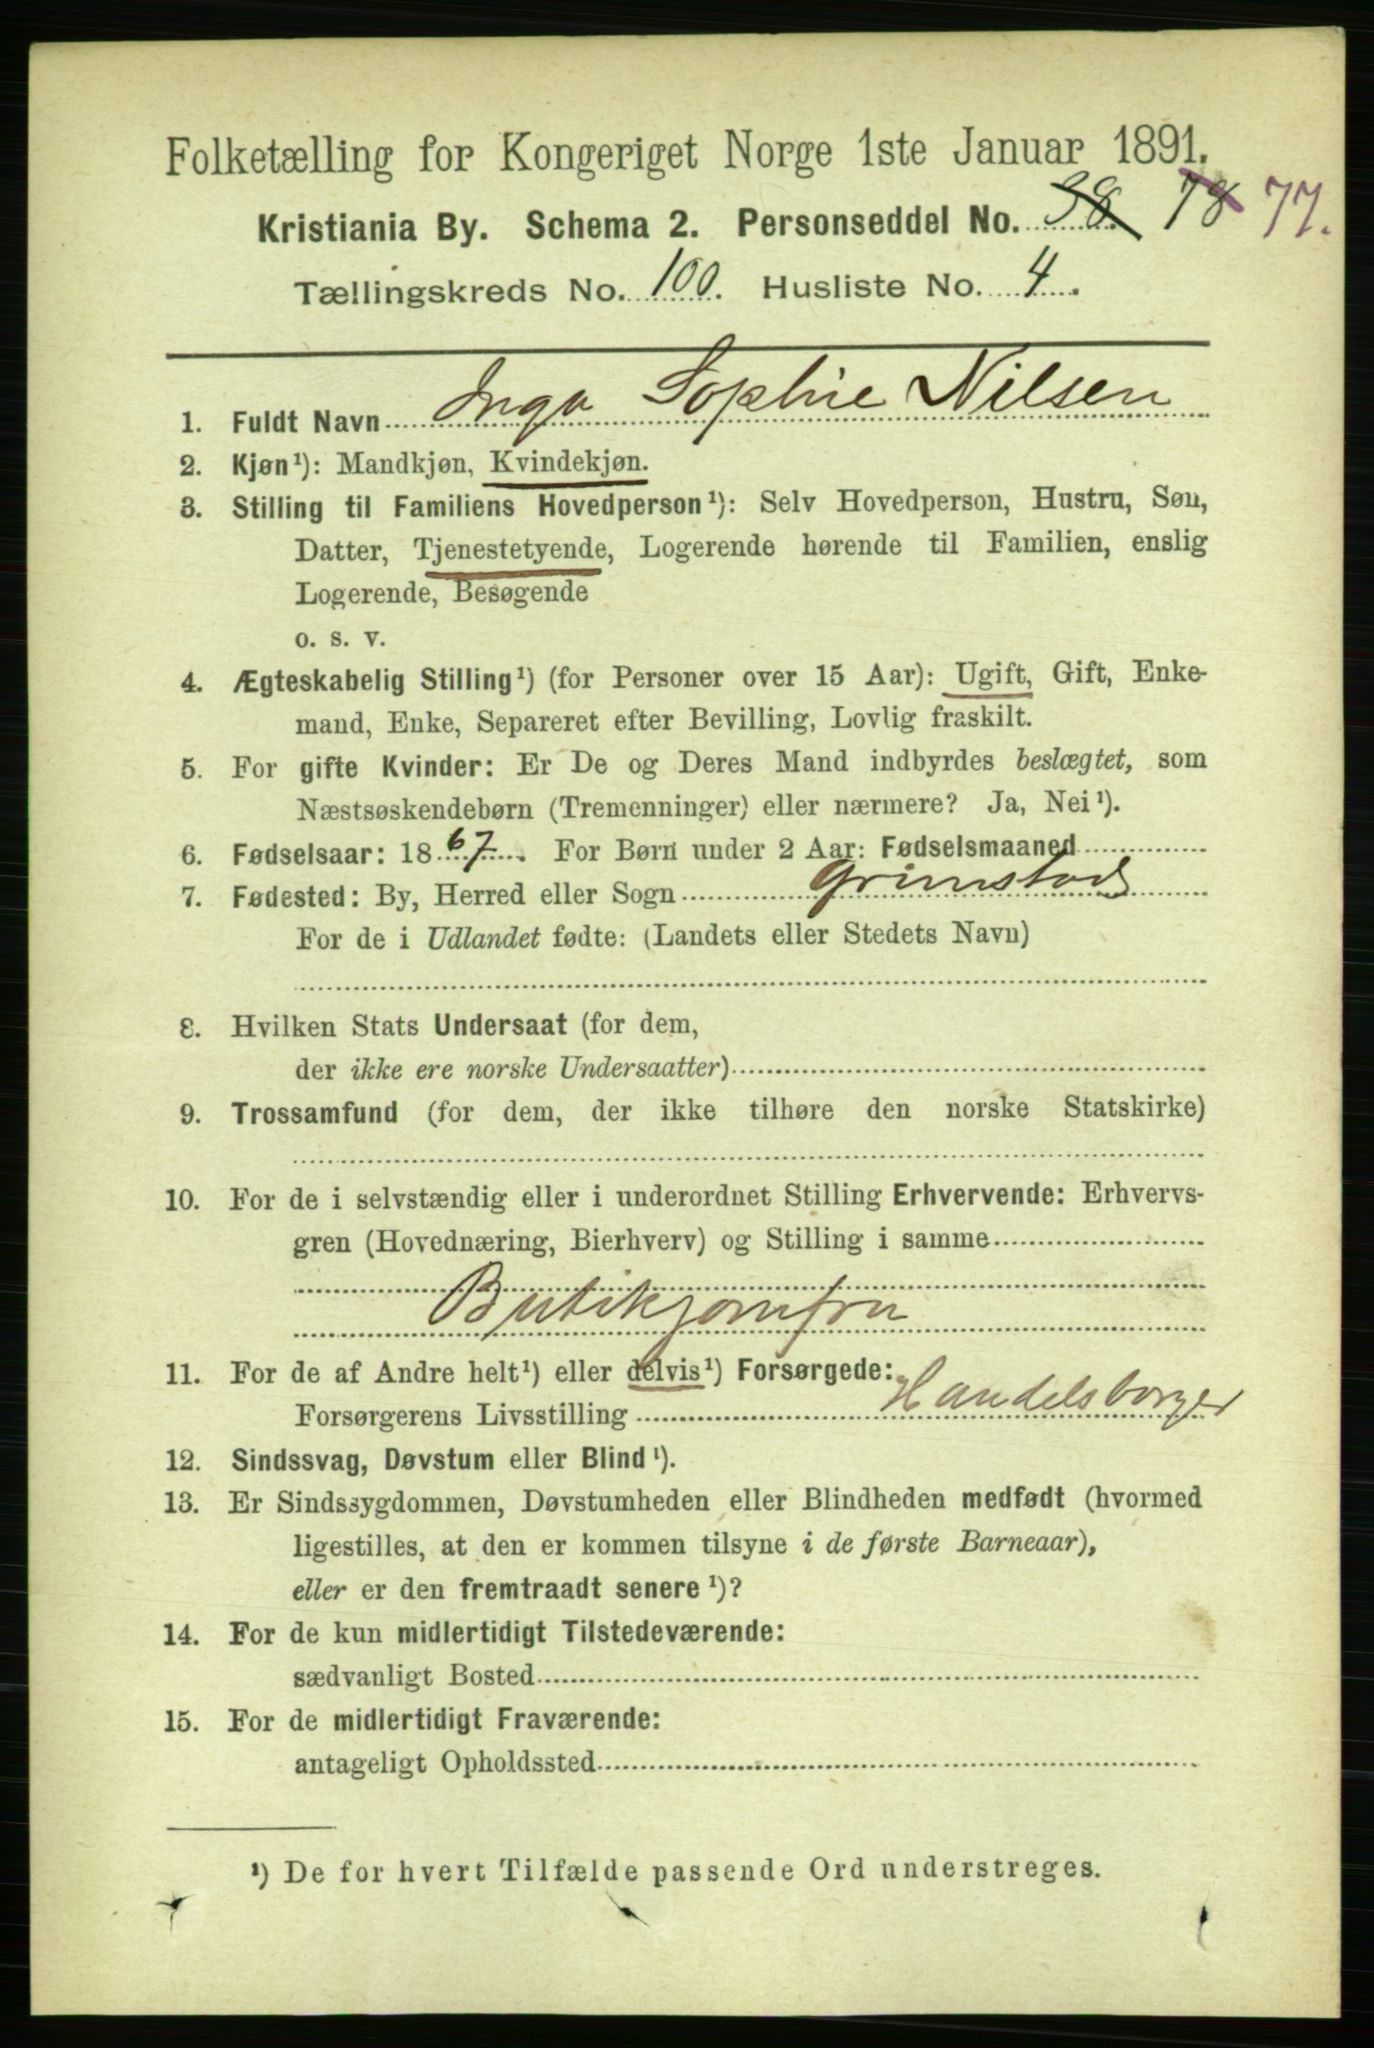 Folketælling for Kongeriget Norge 1ste Januar 1891.
Kristiania By. Schema 2. Personseddel No. 38. 78 77.
Tællingskreds No. 100. Husliste No. 4.
1. Fuldt Navn Inga Sophie Nilsen
2. Kjøn¹): Mandkjøn, Kvindekjøn.
3. Stilling til Familiens Hovedperson¹): Selv Hovedperson, Hustru, Søn,
Datter, Tjenestetyende, Logerende hørende til Familien, enslig
Logerende, Besøgende
o. s. v.
4. Ægteskabelig Stilling¹) (for Personer over 15 Aar): Ugift, Gift, Enke-
mand, Enke, Separeret efter Bevilling, Lovlig fraskilt.
5. For gifte Kvinder: Er De og Deres Mand indbyrdes beslægtet, som
Næstsøskendebørn (Tremenninger) eller nærmere? Ja, Nei¹).
6. Fødselsaar: 1867. For Børn under 2 Aar: Fødselsmaaned
7. Fødested: By, Herred eller Sogn Grimstad
For de i Udlandet fødte: (Landets eller Stedets Navn)
8. Hvilken Stats Undersaat (for dem,
der ikke ere norske Undersaatter)
9. Trossamfund (for dem, der ikke tilhøre den norske Statskirke)
10. For de i selvstændig eller i underordnet Stilling Erhvervende: Erhvervs-
gren (Hovednæring, Bierhverv) og Stilling i samme
Butikjomfru
11. For de af Andre helt¹) eller delvis¹) Forsørgede:
Forsørgerens Livsstilling Handelsborger
12. Sindssvag, Døvstum eller Blind¹).
13. Er Sindssygdommen, Døvstumheden eller Blindheden medfødt (hvormed
ligestilles, at den er kommen tilsyne i de første Barneaar),
eller er den fremtraadt senere¹)?
14. For de kun midlertidigt Tilstedeværende:
sædvanligt Bosted
15. For de midlertidigt Fraværende:
antageligt Opholdssted
¹) De for hvert Tilfælde passende Ord understreges.